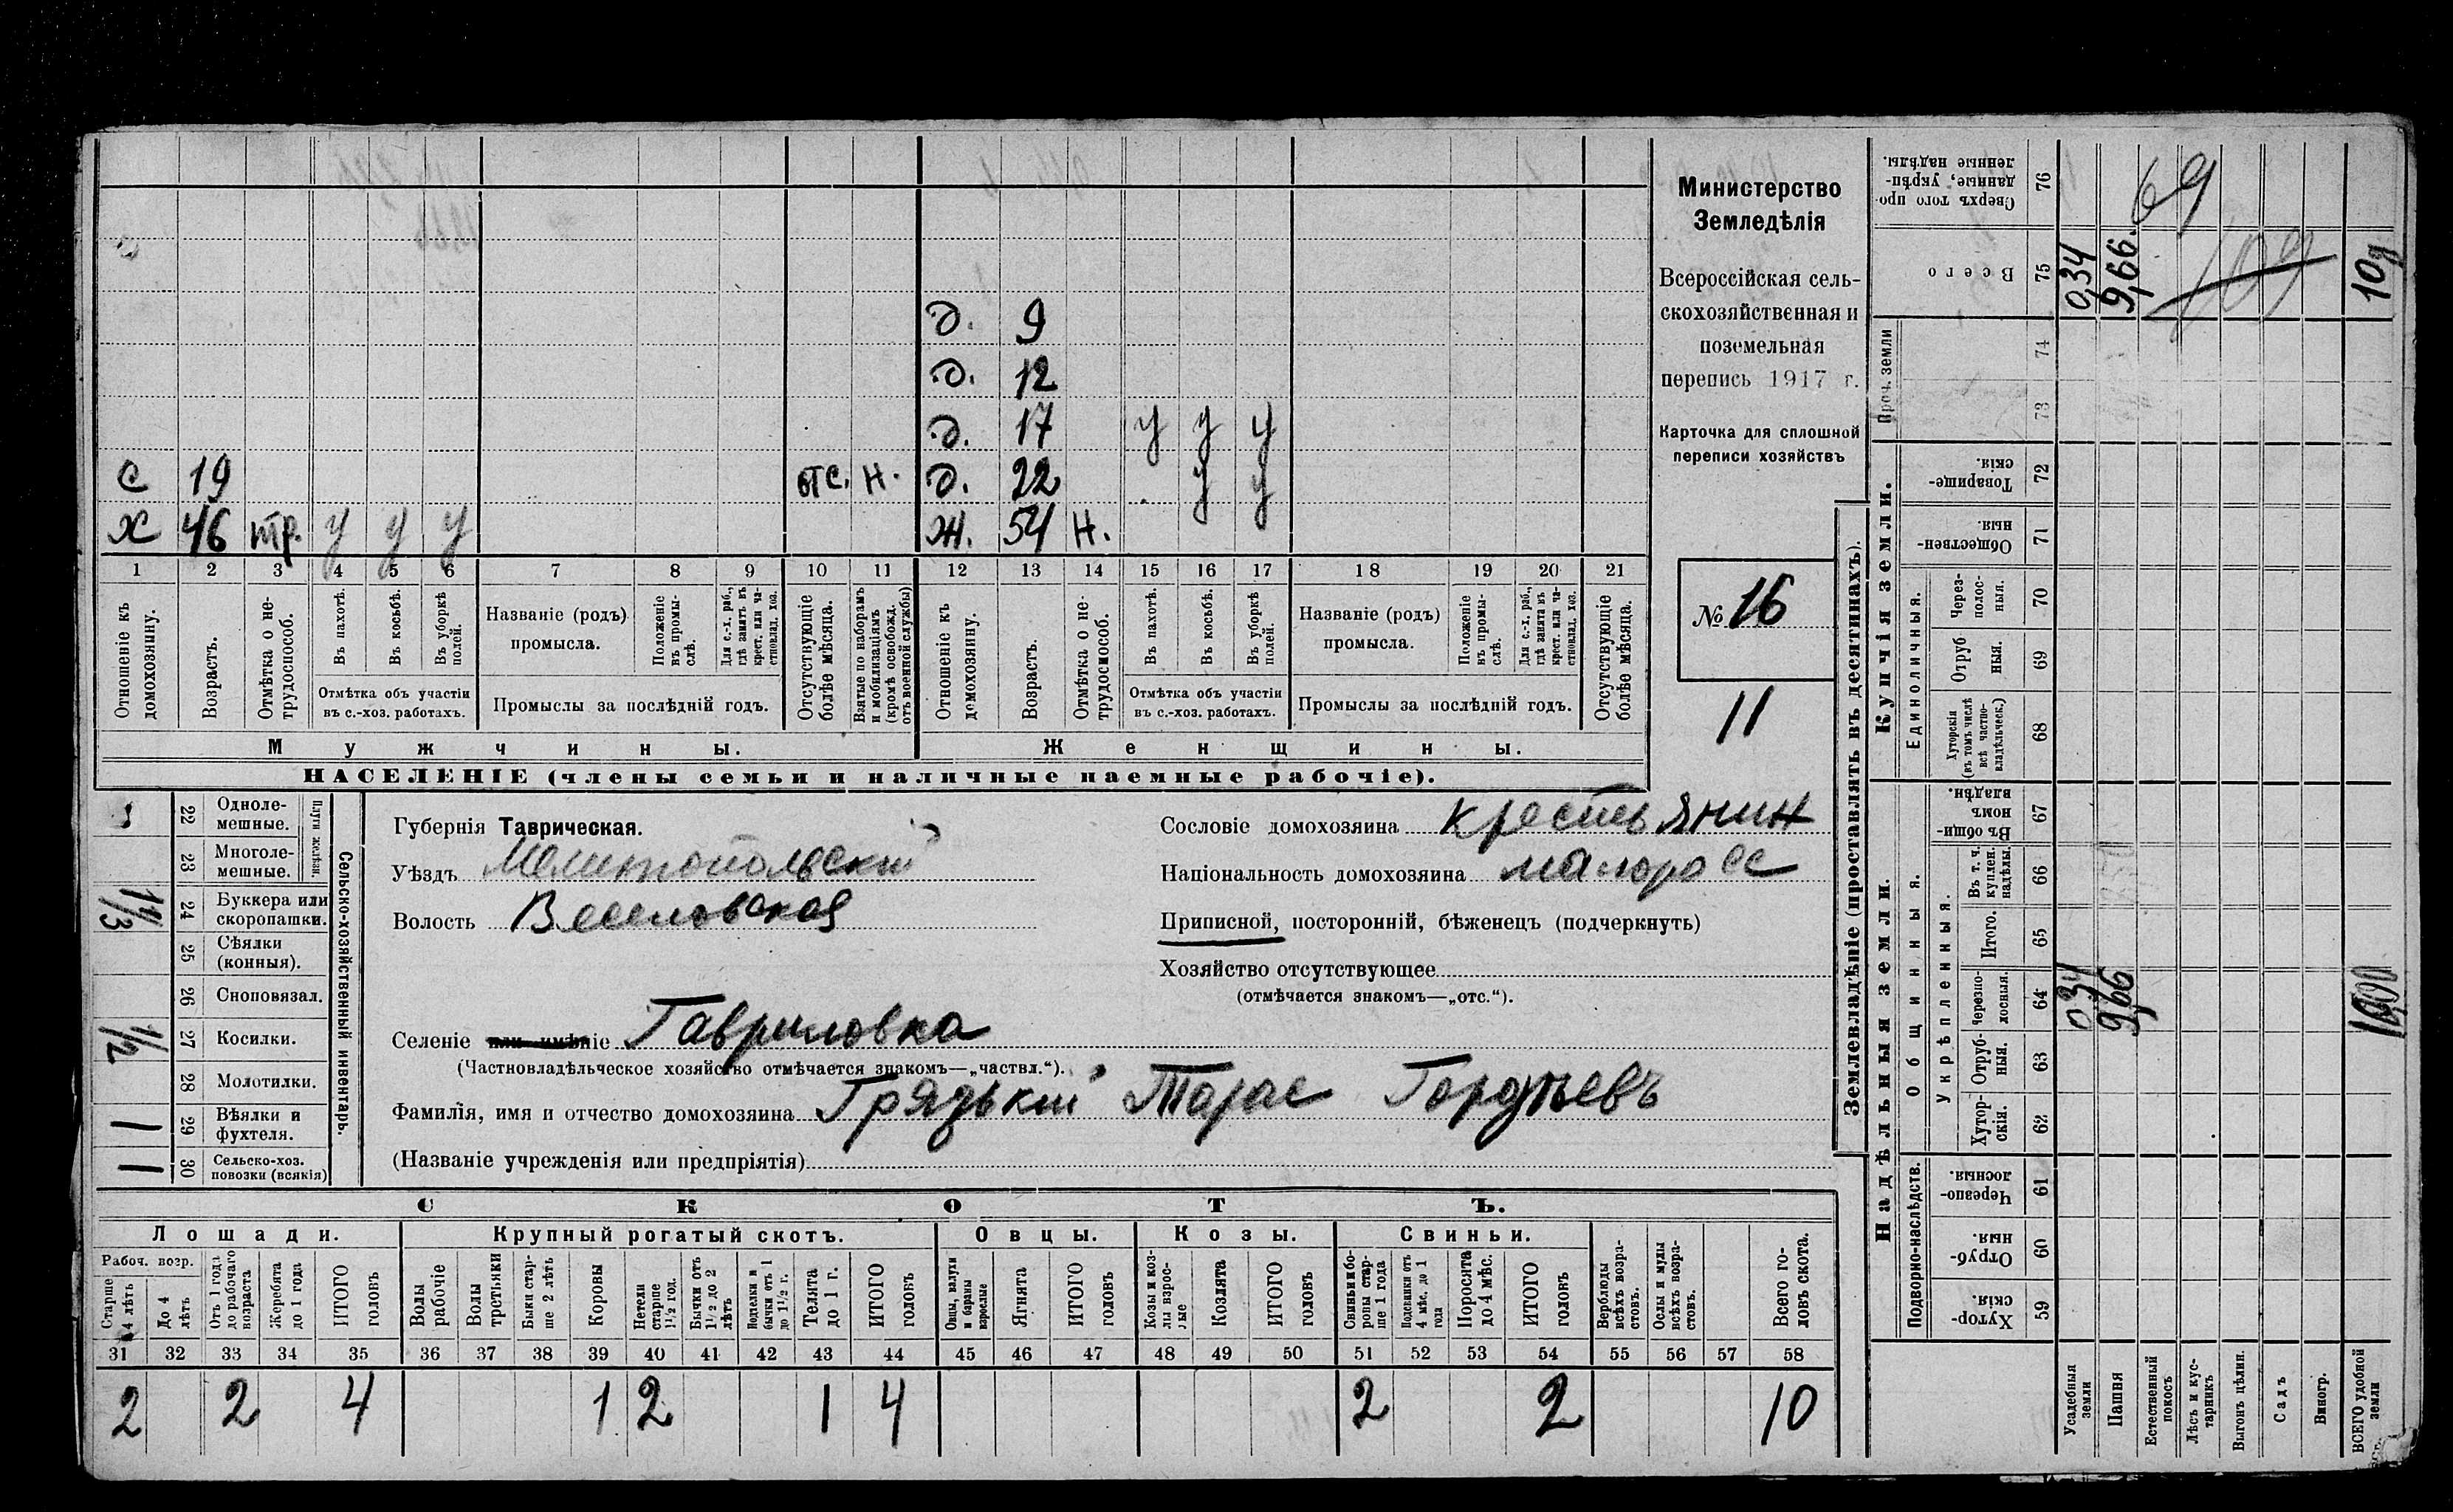 д. 9
д. 12
д. 17 у у у
с 19 отс. н. д. 22 у у
х 46 тр. у у у ж. 54 н.
1 2 3 4 5 6 7 8 9 10 11 12 13 14 15 16 17 18 19 20 21
Отношеніе къ домохозяину.
Возрастъ.
Отмѣтка о не-трудоспособ.
Въ пахотѣ.
Въ косьбѣ.
Въ уборкѣ полей.
Отмѣтка объ участіи
въ с.-хоз. работахъ.
Названіе (родъ)
промысла.
Положеніе въ промы-слѣ.
Для с.-х. раб., гдѣ занятъ въ крест. или ча-стновлад. хоз.
Промыслы за послѣдній годъ.
Отсутствующіе болѣе мѣсяца.
Взятые по наборамъ и мобилизаціямъ (кромѣ освобожд. отъ военной службы)
Отношеніе къ домохозяину.
Возрастъ.
Отмѣтка о не-трудоспособ.
Въ пахотѣ.
Въ косьбѣ.
Въ уборкѣ полей.
Отмѣтка объ участіи
въ с.-хоз. работахъ.
Названіе (родъ)
промысла.
Положеніе въ промы-слѣ.
Для с.-х. раб., гдѣ занята въ крест. или ча-стновлад. хоз.
Промыслы за послѣдній годъ.
Отсутствующіе болѣе мѣсяца.
Мужчины. Женщины.
НАСЕЛЕНІЕ (члены семьи и наличные наемные рабочіе).
Министерство
Земледѣлія
Всероссійская сель-
скохозяйственная и
поземельная
перепись 1917 г.
Карточка для сплошной
переписи хозяйствъ
№ 16
11
Сельско-хозяйственный инвентарь.
Плуги желѣзн.
22 Одноле-мешные.
23 Многоле-мешные.
1 1/3 24 Буккера или скоропашки.
25 Сѣялки (конныя).
26 Сноповязал.
1/2 27 Косилки.
28 Молотилки.
1 29 Вѣялки и фухтеля.
1 30 Сельско-хоз. повозки (всякія)
Губернія Таврическая.
Уѣздъ Мелитопольскій
Волость Веселовская
Сословіе домохозяина крестьянин
Національность домохозяина малоросс
Приписной, посторонній, бѣженецъ (подчеркнуть)
Хозяйство отсутствующее
(отмѣчается знакомъ—„отс.“).
Селеніе или имѣніе Гавриловка
(Частновладѣльческое хозяйство отмѣчается знакомъ—„частвл.“).
Фамилія, имя и отчество домохозяина Грядькій Тарас Гордѣевъ
(Названіе учрежденія или предпріятія)
СКОТЪ.
Лошади. Крупный рогатый скотъ. Овцы. Козы. Свиньи.
Рабоч. возр.
Старше 4 лѣтъ
До 4 лѣтъ
Отъ 1 года до рабочаго возраста
Жеребята до 1 года
ИТОГО головъ
Волы рабочіе
Волы третьяки
Быки стар-ше 2 лѣтъ
Коровы
Нетели старше 1½ год.
Бычки отъ 1½ до 2 лѣтъ
бычки отъ 1 до 1½ г.
Телята до 1 г.
ИТОГО головъ
Овцы, валухи и бараны взрослые
Ягнята
ИТОГО головъ
Козы и коз-лы взрос-лые
Козлята
ИТОГО головъ
Свиньи и бо-ровы стар-ше 1 года
Подсвинки отъ 4 мѣс. до 1 года
Поросята до 4 мѣс.
ИТОГО головъ
Верблюды всѣхъ возра-стовъ.
Ослы и мулы всѣхъ возра-стовъ.
Всего го-ловъ скота.
31 32 33 34 35 36 37 38 39 40 41 42 43 44 45 46 47 48 49 50 51 52 53 54 55 56 57 58
2 2 4 1 2 1 4 2 2 10
Землевладѣніе (проставлять въ десятинахъ).
Надѣльныя земли.
Купчія земли.
Проч. земли
Подворно-наслѣдств.
Общинныя.
Укрѣпленныя.
Единоличныя.
Хутор-скія. 59
Отруб-ныя. 60
Черезпо-лосныя. 61
Хутор-скія. 62
Отруб-ныя. 63
Черезпо-лосныя. 64
Итого. 65
Въ т. ч. куплен. надѣлы. 66
Въ общи-номъ владѣн. 67
Хуторскія (въ томъ числѣ всѣ частно-владѣльческ.) 68
Отруб ныя. 69
Через-полос-ныя. 70
Обществен-ныя. 71
Товарище-скія. 72
73
74
Всего 75
Сверхъ того про-данные, укрѣп-ленные надѣлы. 76
Усадебныя земли 0,34 0,34
Пашня 9,66 9,66.
Естественный покосъ
Лѣсъ и кус-тарникъ
Выгонъ цѣлин.
Садъ
Виногр.
ВСЕГО удобной земли 10,00 10д
69
10д